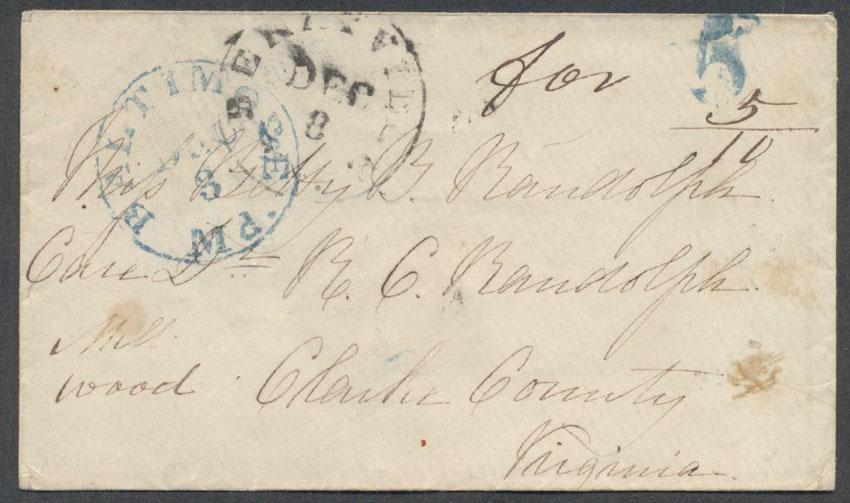 BERRYVILLE
DEC
8
BALTIMORE
DEC
3
PM
for
5
5
10
Miss Betty B. Randolph
Care Dr R. C. Randolph
Mill
wood Clarke County
Virginia